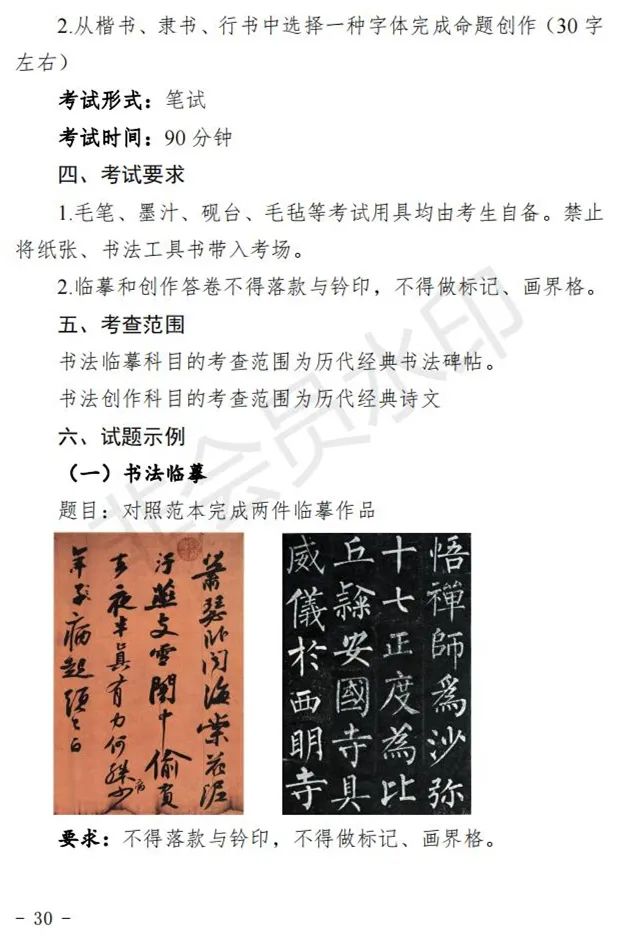 2.从楷书、隶书、行书中选择一种字体完成命题创作（30 字
左右）
考试形式：笔试
考试时间：90 分钟
四、考试要求
1.毛笔、墨汁、砚台、毛毡等考试用具均由考生自备。禁止
将纸张、书法工具书带入考场。
2.临摹和创作答卷不得落款与钤印，不得做标记、画界格。
五、考查范围
书法临摹科目的考查范围为历代经典书法碑帖。
书法创作科目的考查范围为历代经典诗文
六、试题示例
（一）书法临摹
题目：对照范本完成两件临摹作品
萧瑟卧闻海棠花泥
汙燕支雪闇中偷负
去夜半真有力何殊少
年子病起须已白
病
悟禪師爲沙弥
十七正度為比
丘隸安國寺具
威儀於西明寺
要求：不得落款与钤印，不得做标记、画界格。
- 30 -
非会员水印